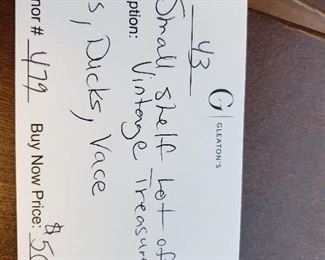 43
G GLEATON'S
Small, shelf Lot of
ption: Vintage Treasur
s, Ducks, Vace
nor # 479 Buy Now Price: $50